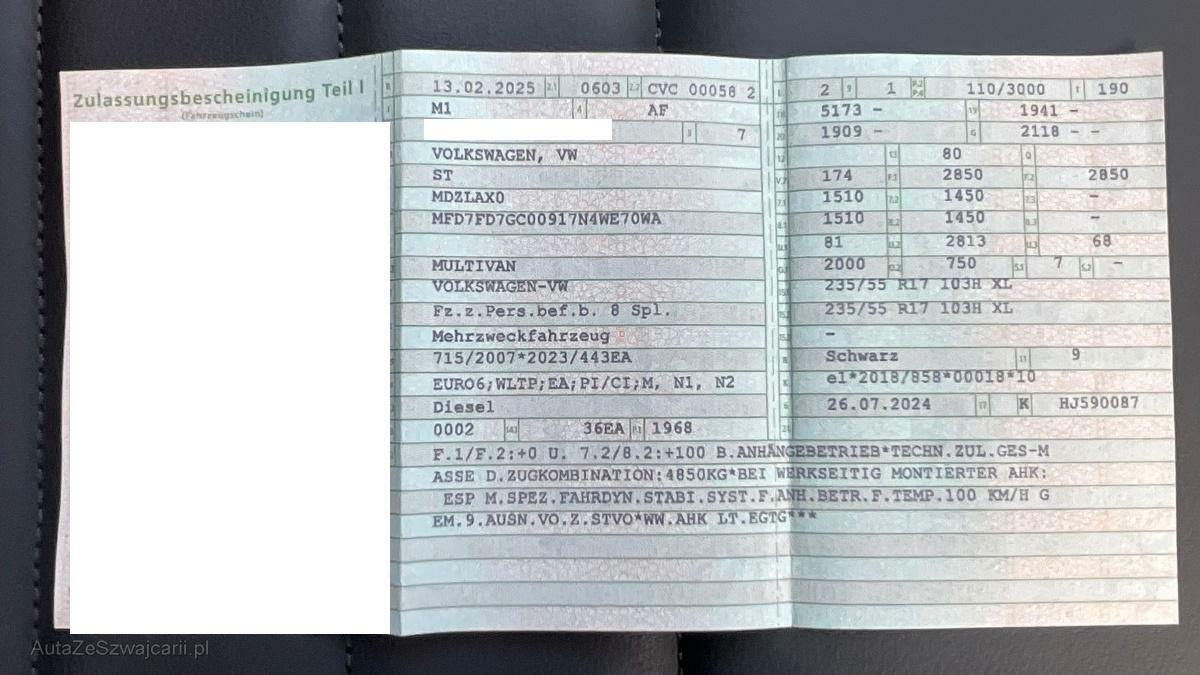 Zulassungsbescheinigung Teil I
(Fahrzeugschein)
13.02.2025 2.1 0603 2.2 CVC 00058 2
M1 4 AF
3 7
VOLKSWAGEN, VW
ST
MDZLAX0
MFD7FD7GC00917N4WE70WA
MULTIVAN
VOLKSWAGEN-VW
Fz.z.Pers.bef.b. 8 Spl.
Mehrzweckfahrzeug
715/2007*2023/443EA
EURO6;WLTP;EA;PI/CI;M, N1, N2
Diesel
0002 36EA P.1 1968
2 9 1 P.2 P.4 110/3000 T 190
5173 - 19 1941 -
1909 - G 2118 - -
13 80 Q
174 F.1 2850 F.2 2850
1510 7.2 1450 7.3 -
1510 8.2 1450 8.3 -
81 U.2 2813 U.3 68
2000 O.2 750 S.1 7 S.2 -
235/55 R17 103H XL
235/55 R17 103H XL
-
Schwarz 11 9
e1*2018/858*00018*10
26.07.2024 17 K HJ590087
F.1/F.2:+0 U. 7.2/8.2:+100 B.ANHÄNGEBETRIEB*TECHN.ZUL.GES-M
ASSE D.ZUGKOMBINATION:4850KG*BEI WERKSEITIG MONTIERTER AHK:
ESP M.SPEZ.FAHRDYN.STABI.SYST.F.ANH.BETR.F.TEMP.100 KM/H G
EM.9.AUSN.VO.Z.STVO*WW.AHK LT.EGTG***
AutaZeSzwajcarii.pl